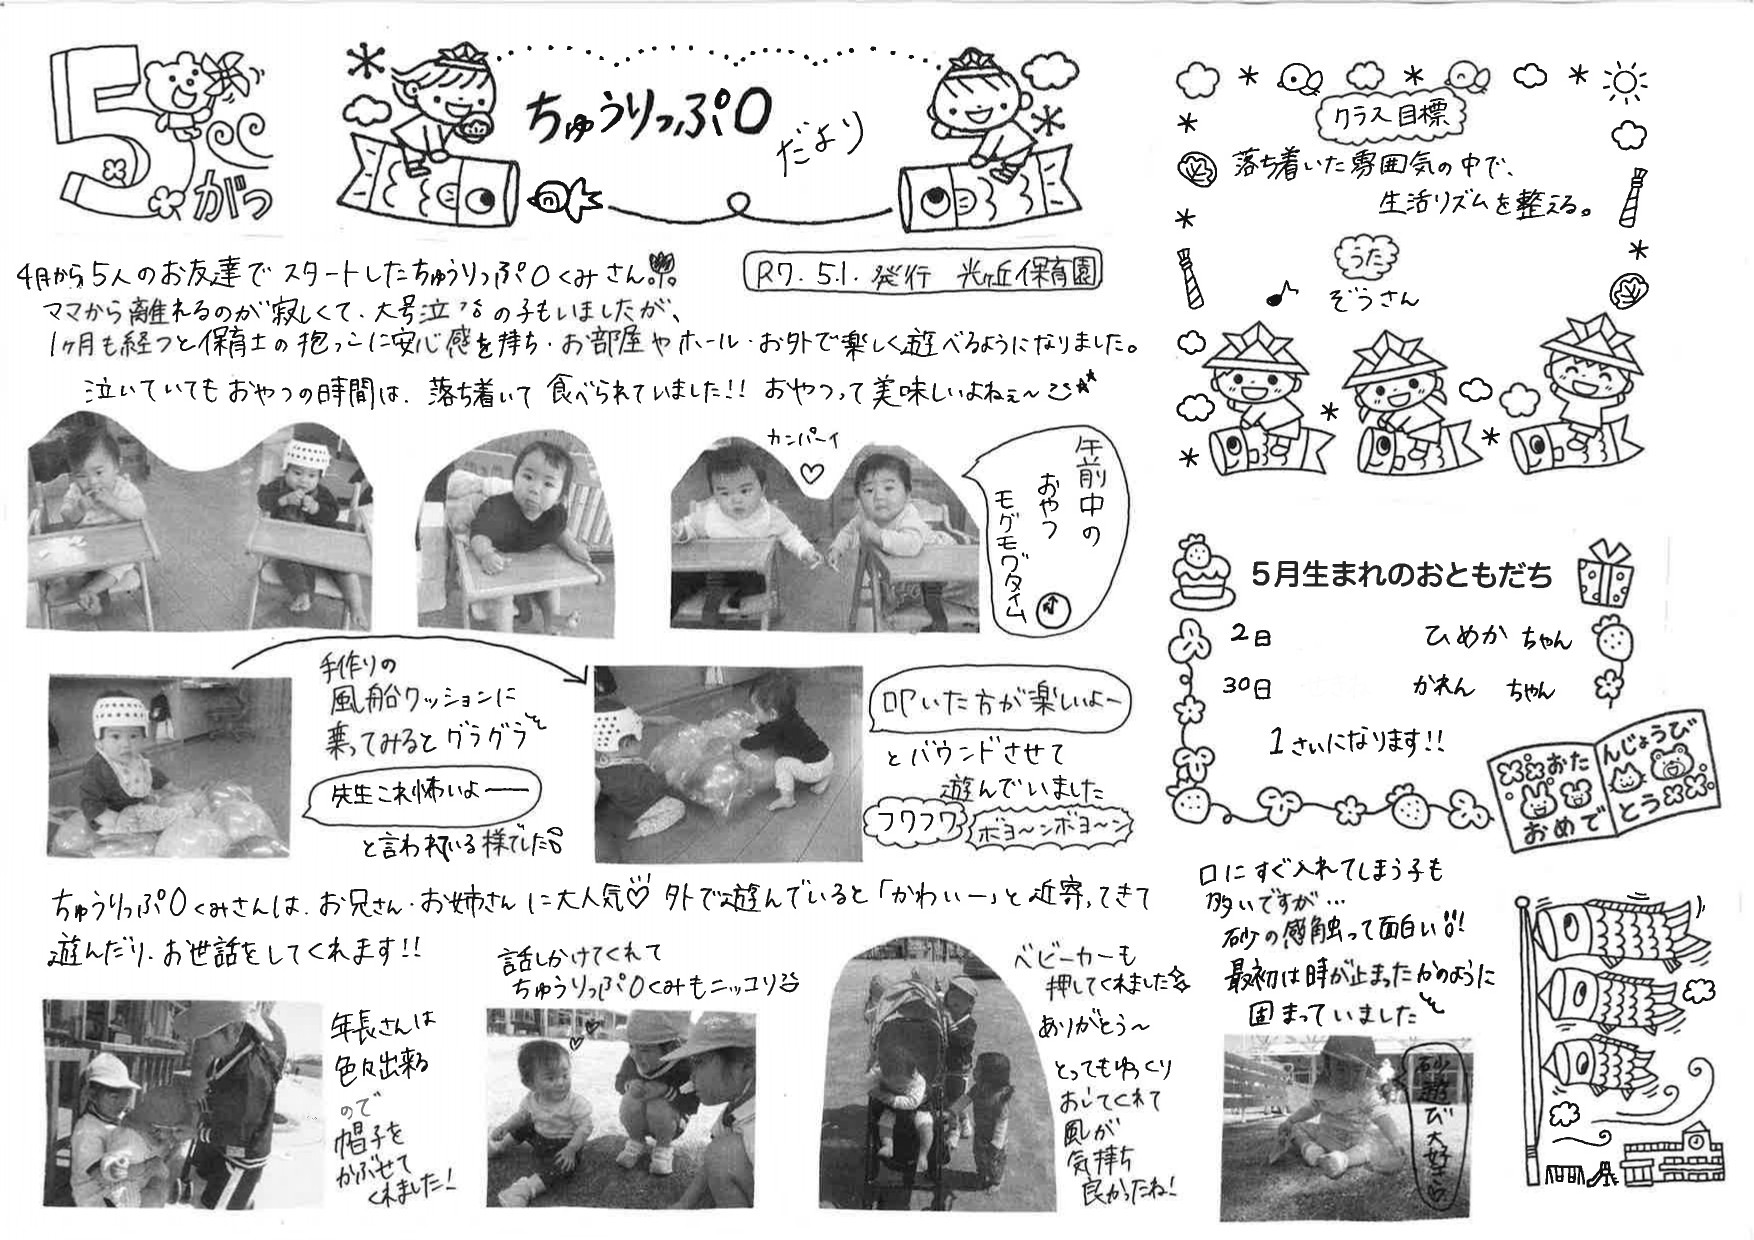 5がつ
ちゅうりっぷ0
だより
R7.5.1.発行 光ヶ丘保育園
4月から5人のお友達でスタートしたちゅうりっぷ0くみさん
ママから離れるのが寂しくて、大号泣の子もいましたが、
1ヶ月も経つと保育士の抱っこに安心感を持ち・お部屋やホール・お外で楽しく遊べるようになりました。
泣いていてもおやつの時間は、落ち着いて食べられていました!! おやつって美味しいよねぇ〜
カンパーイ
午前中の
おやつ
モグモグタイム
手作りの
風船クッションに
乗ってみるとグラグラ
先生これ怖いよー
と言われている様でした
叩いた方が楽しいよー
とバウンドさせて
遊んでいました
フワフワ
ボヨ〜ンボヨ〜ン
ちゅうりっぷ0くみさんは、お兄さん・お姉さんに大人気♡ 外で遊んでいると「かわいー」と近寄ってきて
遊んだり、お世話をしてくれます!!
年長さんは
色々出来る
ので
帽子を
かぶせて
くれました!
話しかけてくれて
ちゅうりっぷ0くみもニッコリ
ベビーカーも
押してくれました☆
ありがとう〜
とってもゆっくり
おしてくれて
風が
気持ち
良かったね!
クラス目標
落ち着いた雰囲気の中で、
生活リズムを整える。
うた
♪ ぞうさん
5月生まれのおともだち
2日 ひめか ちゃん
30日 かれん ちゃん
1さいになります!!
おたんじょうび
おめでとう
口にすぐ入れてしまう子も
多いですが…
砂の感触って面白い!!
最初は時が止まったかのように
固まっていました
砂遊び大好き♡